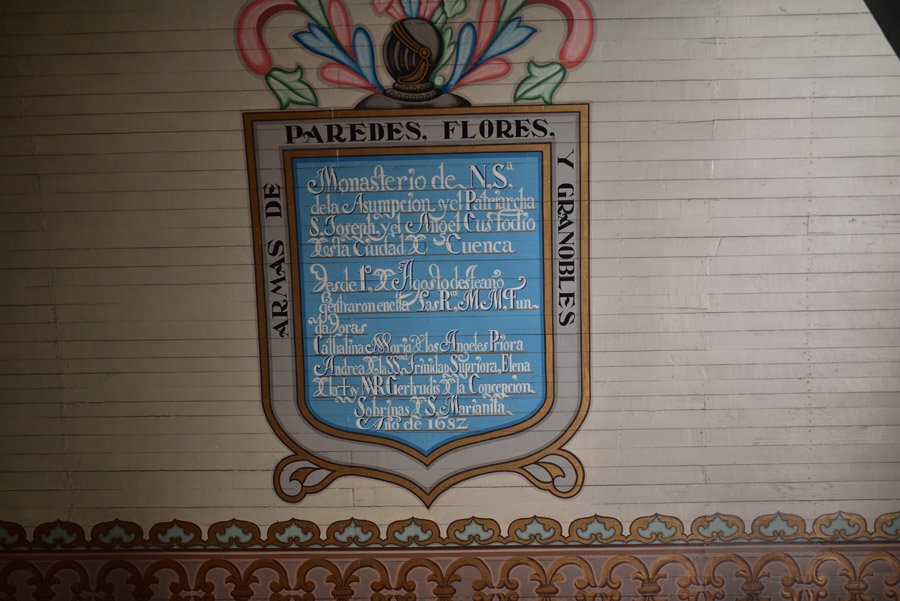 ARMAS DE
PAREDES, FLORES,
Y GRANOBLES
Monasterio de N.Sª.
dela Asumpcion, y el Patriarcha
S. Joseph, y el Angel Custodio
Desta Ciudad De Cuenca
Desde 1º, De Agosto desteaño
qentraron enella Las Rªs. M.M, Fun
dadoras
Cathalina Maria De los Angeles Priora
Andrea De la SSma. Trinidad Supriora, Elena
De la † y M.R. Gertrudis De la Concepcion
Sobrinas De S. Marianita
Año de 1682